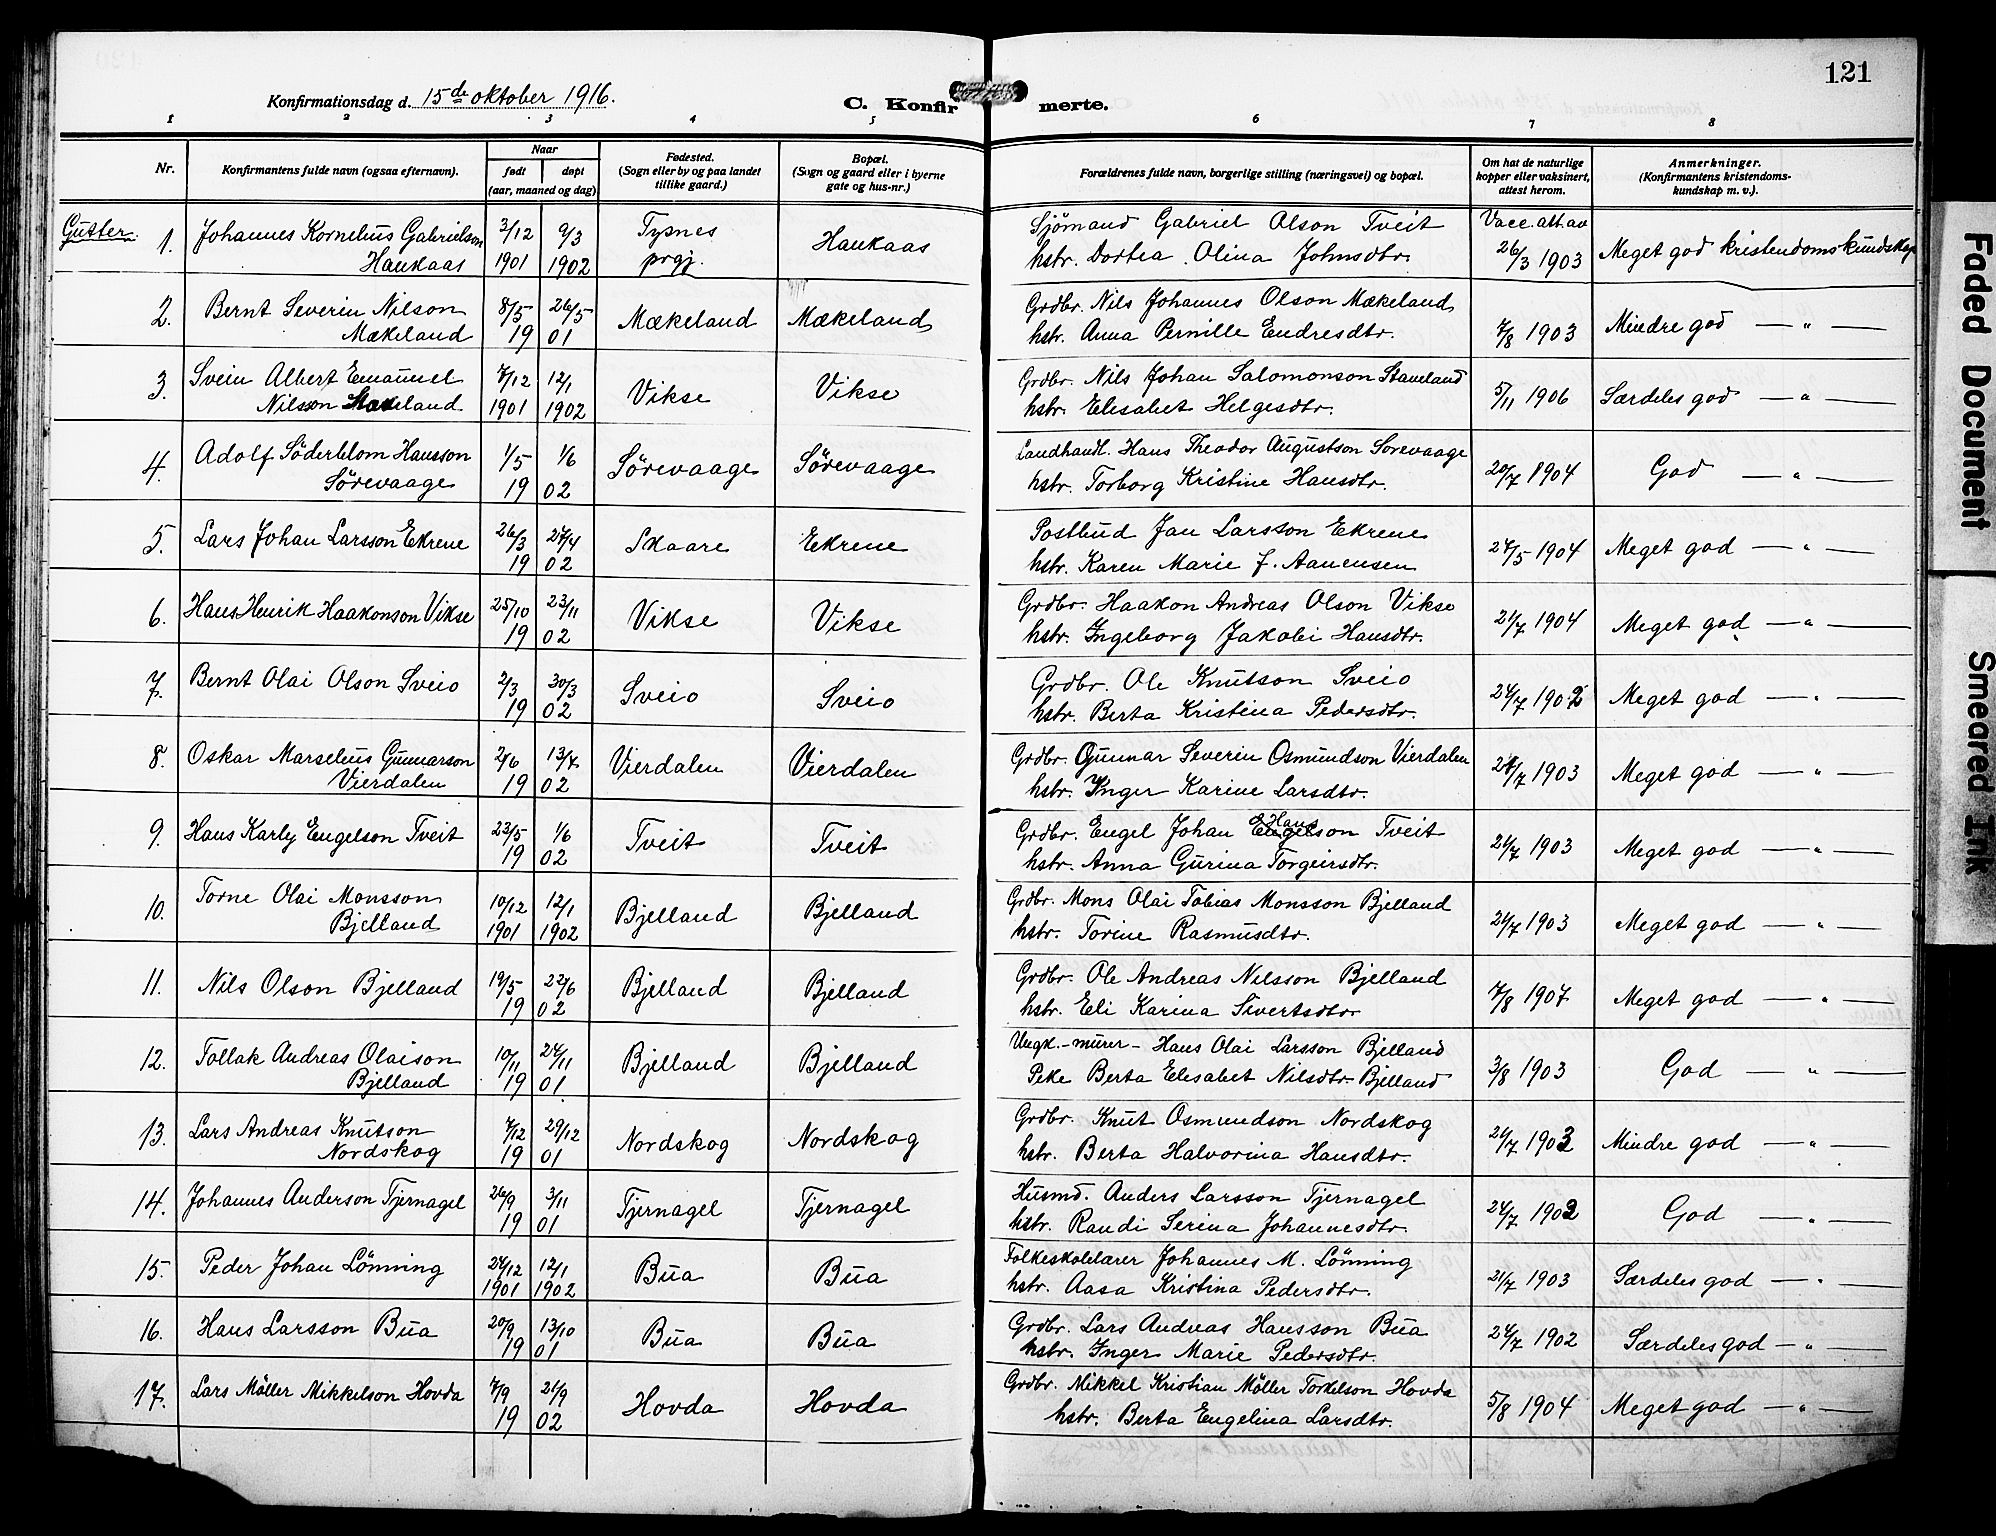 121
Konfirmationsdag d. 15de oktober 1916.
C. Konfirmerte.
1 2 3 4 5 6 7 8
Nr.
Konfirmantens fulde navn (ogsaa efternavn).
Naar
født døpt
(aar, maaned og dag)
Fødested.
(Sogn eller by og paa landet
tillike gaard.)
Bopæl.
(Sogn og gaard eller i byerne
gate og hus-nr.)
Forældrenes fulde navn, borgerlige stilling (næringsvei) og bopæl.
Om hat de naturlige
kopper eller vaksinert,
attest herom.
Anmerkninger.
(Konfirmantens kristendoms-
kundskap m. v.).
Gutter
1. Johannes Kornelius Gabrielson 3/12 9/3 Tysnes Haukaas Sjømand Gabriel Olson Tveit Vacc. att. av
Haukaas 1901 1902 prgj. hstr. Dortea Olina Johnsdtr. 26/3 1903 Meget god kristendomskundskap
2. Bernt Severin Nilson 8/5 26/5 Mækeland Mækeland Grdbr. Nils Johannes Olson Mækeland
Mækeland 19 01 hstr. Anna Pernille Endresdtr. 7/8 1903 Mindre god — " —
3. Svein Albert Emanuel 7/12 12/1 Vikse Vikse Grdbr. Nils Johan Salomonson Staveland
Nilsson Staveland 1901 1902 hstr. Elesabet Helgesdtr. 5/11 1906 Særdeles god — " —
4. Adolf Söderblom Hansson 1/5 1/6 Sörevaage Sörevaage Landhandl. Hans Theodor Augustson Sorevaage
Sörevaage 19 02 hstr. Torborg Kristine Hansdtr. 20/7 1904 God — " —
5. Lars Johan Larsson Ekrene 26/3 27/4 Skaare Ekrene Postbud Jan Larsson Ekrene
19 02 hstr. Karen Marie f. Aanensen 27/5 1904 Meget god — " —
6. Hans Henrik Haakonson Vikse 25/10 23/11 Vikse Vikse Grdbr. Haakon Andreas Olson Vikse
19 02 hstr. Ingeborg Jakobi Hansdtr. 21/7 1904 Meget god — " —
7. Bernt Olai Olson Sveio 2/3 30/3 Sveio Sveio Grdbr. Ole Knutson Sveio
19 02 hstr. Berta Kristina Pedersdtr. 24/7 1902 Meget god — " —
8. Oskar Marselius Gunnarson 2/6 13/7 Vierdalen Vierdalen Grdbr. Gunnar Severin Osmundson Vierdalen
Vierdalen 19 02 hstr. Inger Karine Larsdtr. 24/7 1903 Meget god — " —
9. Hans Karly Engelson Tveit 23/5 1/6 Tveit Tveit Grdbr. Engel Johan Hansson Tveit
19 02 hstr. Anna Gurina Torgeirsdtr. 24/7 1903 Meget god — " —
10. Torne Olai Monsson 10/12 12/1 Bjelland Bjelland Grdbr. Mons Olai Tobias Monsson Bjelland
Bjelland 1901 1902 hstr. Torine Rasmusdtr. 24/7 1903 Meget god — " —
11. Nils Olson Bjelland 19/5 22/6 Bjelland Bjelland Grdbr. Ole Andreas Nilsson Bjelland
19 02 hstr. Eli Karina Sivertsdtr 7/8 1907 Meget god — " —
12. Tollak Andreas Olaison 10/11 24/11 Bjelland Bjelland Ungk.-murer- Hans Olai Larsson Bjelland
Bjelland 19 01 Peke Berta Elesabet Nilsdtr. Bjelland 3/8 1903 God — " —
13. Lars Andreas Knutson 7/12 29/12 Nordskog Nordskog Grdbr. Knut Osmundson Nordskog
Nordskog 19 01 hstr. Berta Halvorina Hansdtr. 24/7 1903 Mindre god — " —
14. Johannes Anderson Tjernagel 26/9 3/11 Tjernagel Tjernagel Husmd. Anders Larsson Tjernagel
19 01 hstr. Randi Serina Johannesdtr. 24/7 1902 God — " —
15. Peder Johan Lönning 24/12 12/1 Bua Bua Folkeskolelærer Johannes M. Lönning
1901 1902 hstr. Aasa Kristina Pedersdtr. 21/7 1903 Særdeles god — " —
16. Hans Larsson Bua 20/9 13/10 Bua Bua Grdbr. Lars Andreas Hansson Bua
19 01 hstr. Inger Marie Pedersdtr. 24/7 1902 Særdeles god — " —
17. Lars Möller Mikkelson Hovda 7/9 21/9 Hovda Hovda Grdbr. Mikkel Kristian Möller Torkelson Hovda
19 02 hstr. Berta Engelina Larsdtr. 5/8 1904 Meget god — " —
Faded Document
Smeared Ink